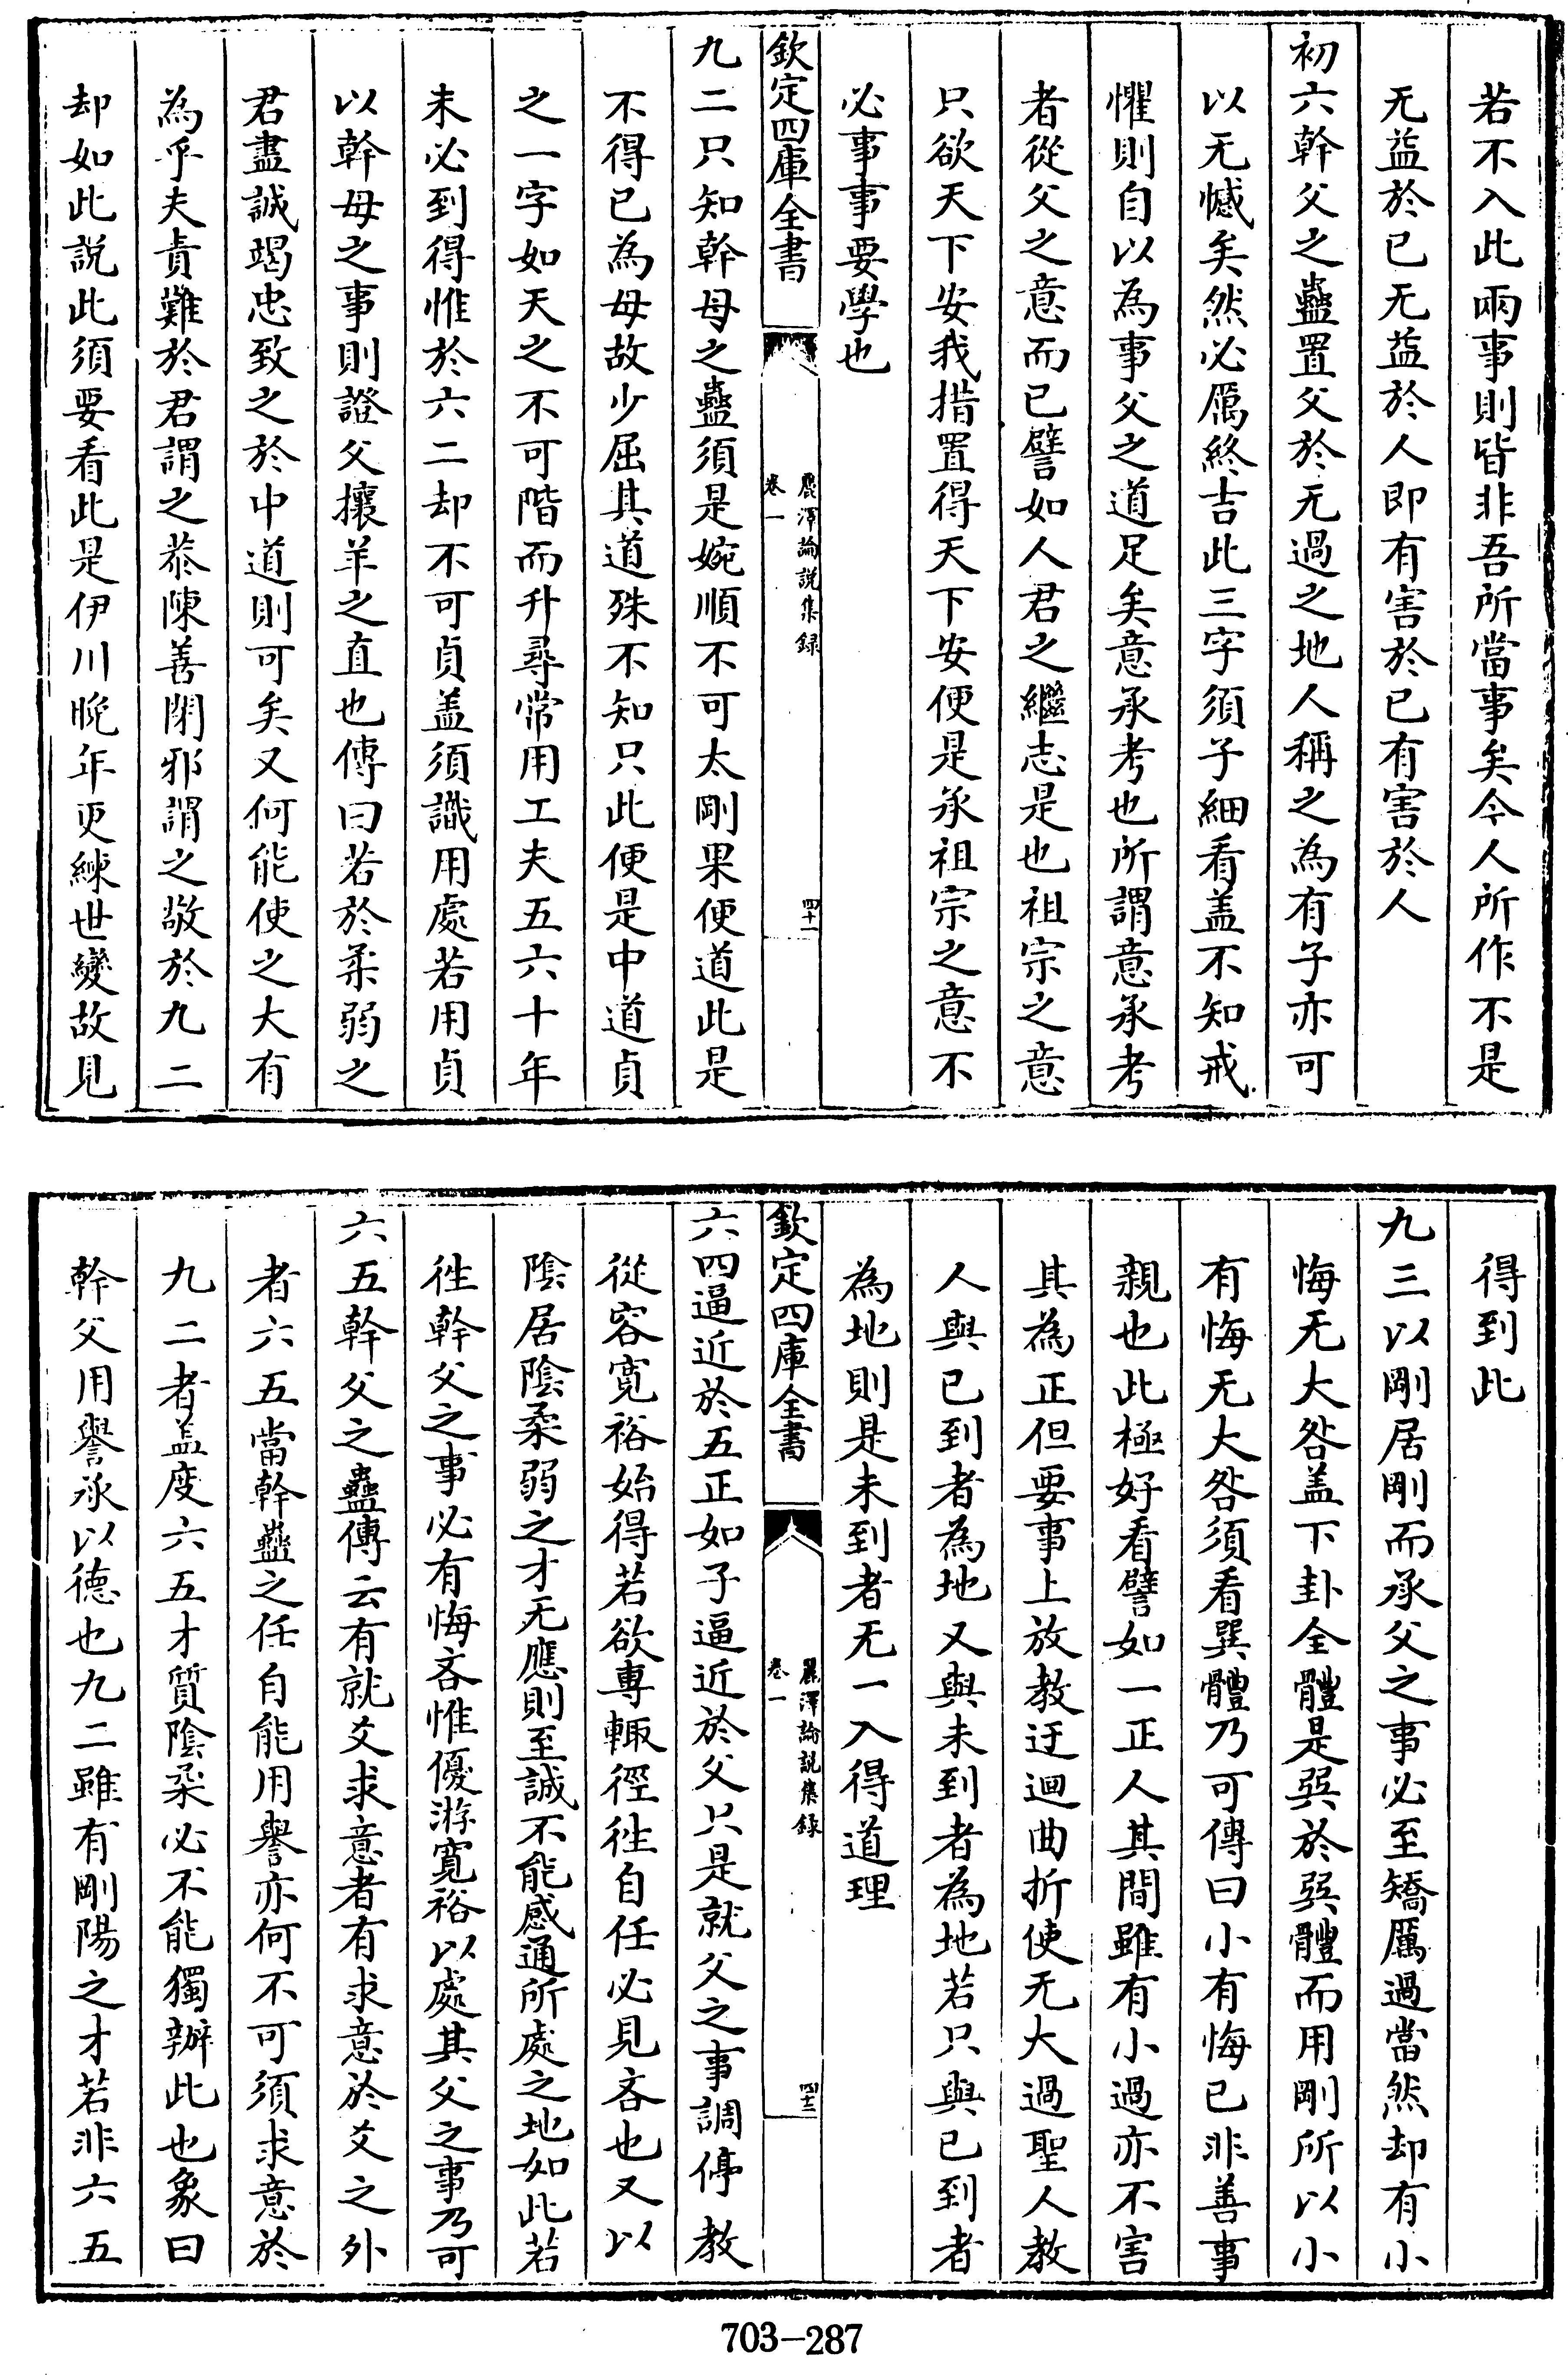 若不入此兩事則皆非吾所當事矣今人所作不是
无益於已无益於人即有害於已有害於人
初六幹父之蠱置父於无過之地人稱之為有子亦可
以无憾矣然必厲終吉此三字須子細看盖不知戒
懼則自以為事父之道足矣意承考也所謂意承考
者從父之意而已譬如人君之繼志是也祖宗之意
只欲天下安我措置得天下安便是承祖宗之意不
必事事要學也
欽定四庫全書
麗澤論說集録
卷一
四十一
九二只知幹母之蠱須是婉順不可太剛果便道此是
不得已為母故少屈其道殊不知只此便是中道貞
之一字如天之不可階而升尋常用工夫五六十年
未必到得惟於六二却不可貞盖須識用處若用貞
以幹母之事則證父攘羊之直也傳曰若於柔弱之
君盡誠竭忠致之於中道則可矣又何能使之大有
為乎夫責難於君謂之恭陳善閉邪謂之敬於九二
却如此説此須要看此是伊川晚年更練世變故見
得到此
九三以剛居剛而承父之事必至矯厲過當然却有小
悔无大咎盖下卦全體是巽於巽體而用剛所以小
有悔无大咎須看巽體乃可傳曰小有悔已非善事
親也此極好看譬如一正人其間雖有小過亦不害
其為正但要事上放教迂迴曲折使无大過聖人教
人與已到者為地又與未到者為地若只與已到者
為地則是未到者无一入得道理
欽定四庫全書
麗澤論說集録
卷一
四十二
六四逼近於五正如子逼近於父只是就父之事調停教
從容寛裕始得若欲專輙徑徃自任必見吝也又以
陰居陰柔弱之才无應則至誠不能感通所處之地如此若
徃幹父之事必有悔吝惟優游寛裕以處其父之事乃可
六五幹父之蠱傳云有就爻求意者有求意於爻之外
者六五當幹蠱之任自能用譽亦何不可須求意於
九二者盖度六五才質陰柔必不能獨辦此也象曰
幹父用譽承以德也九二雖有剛陽之才若非六五
703-287